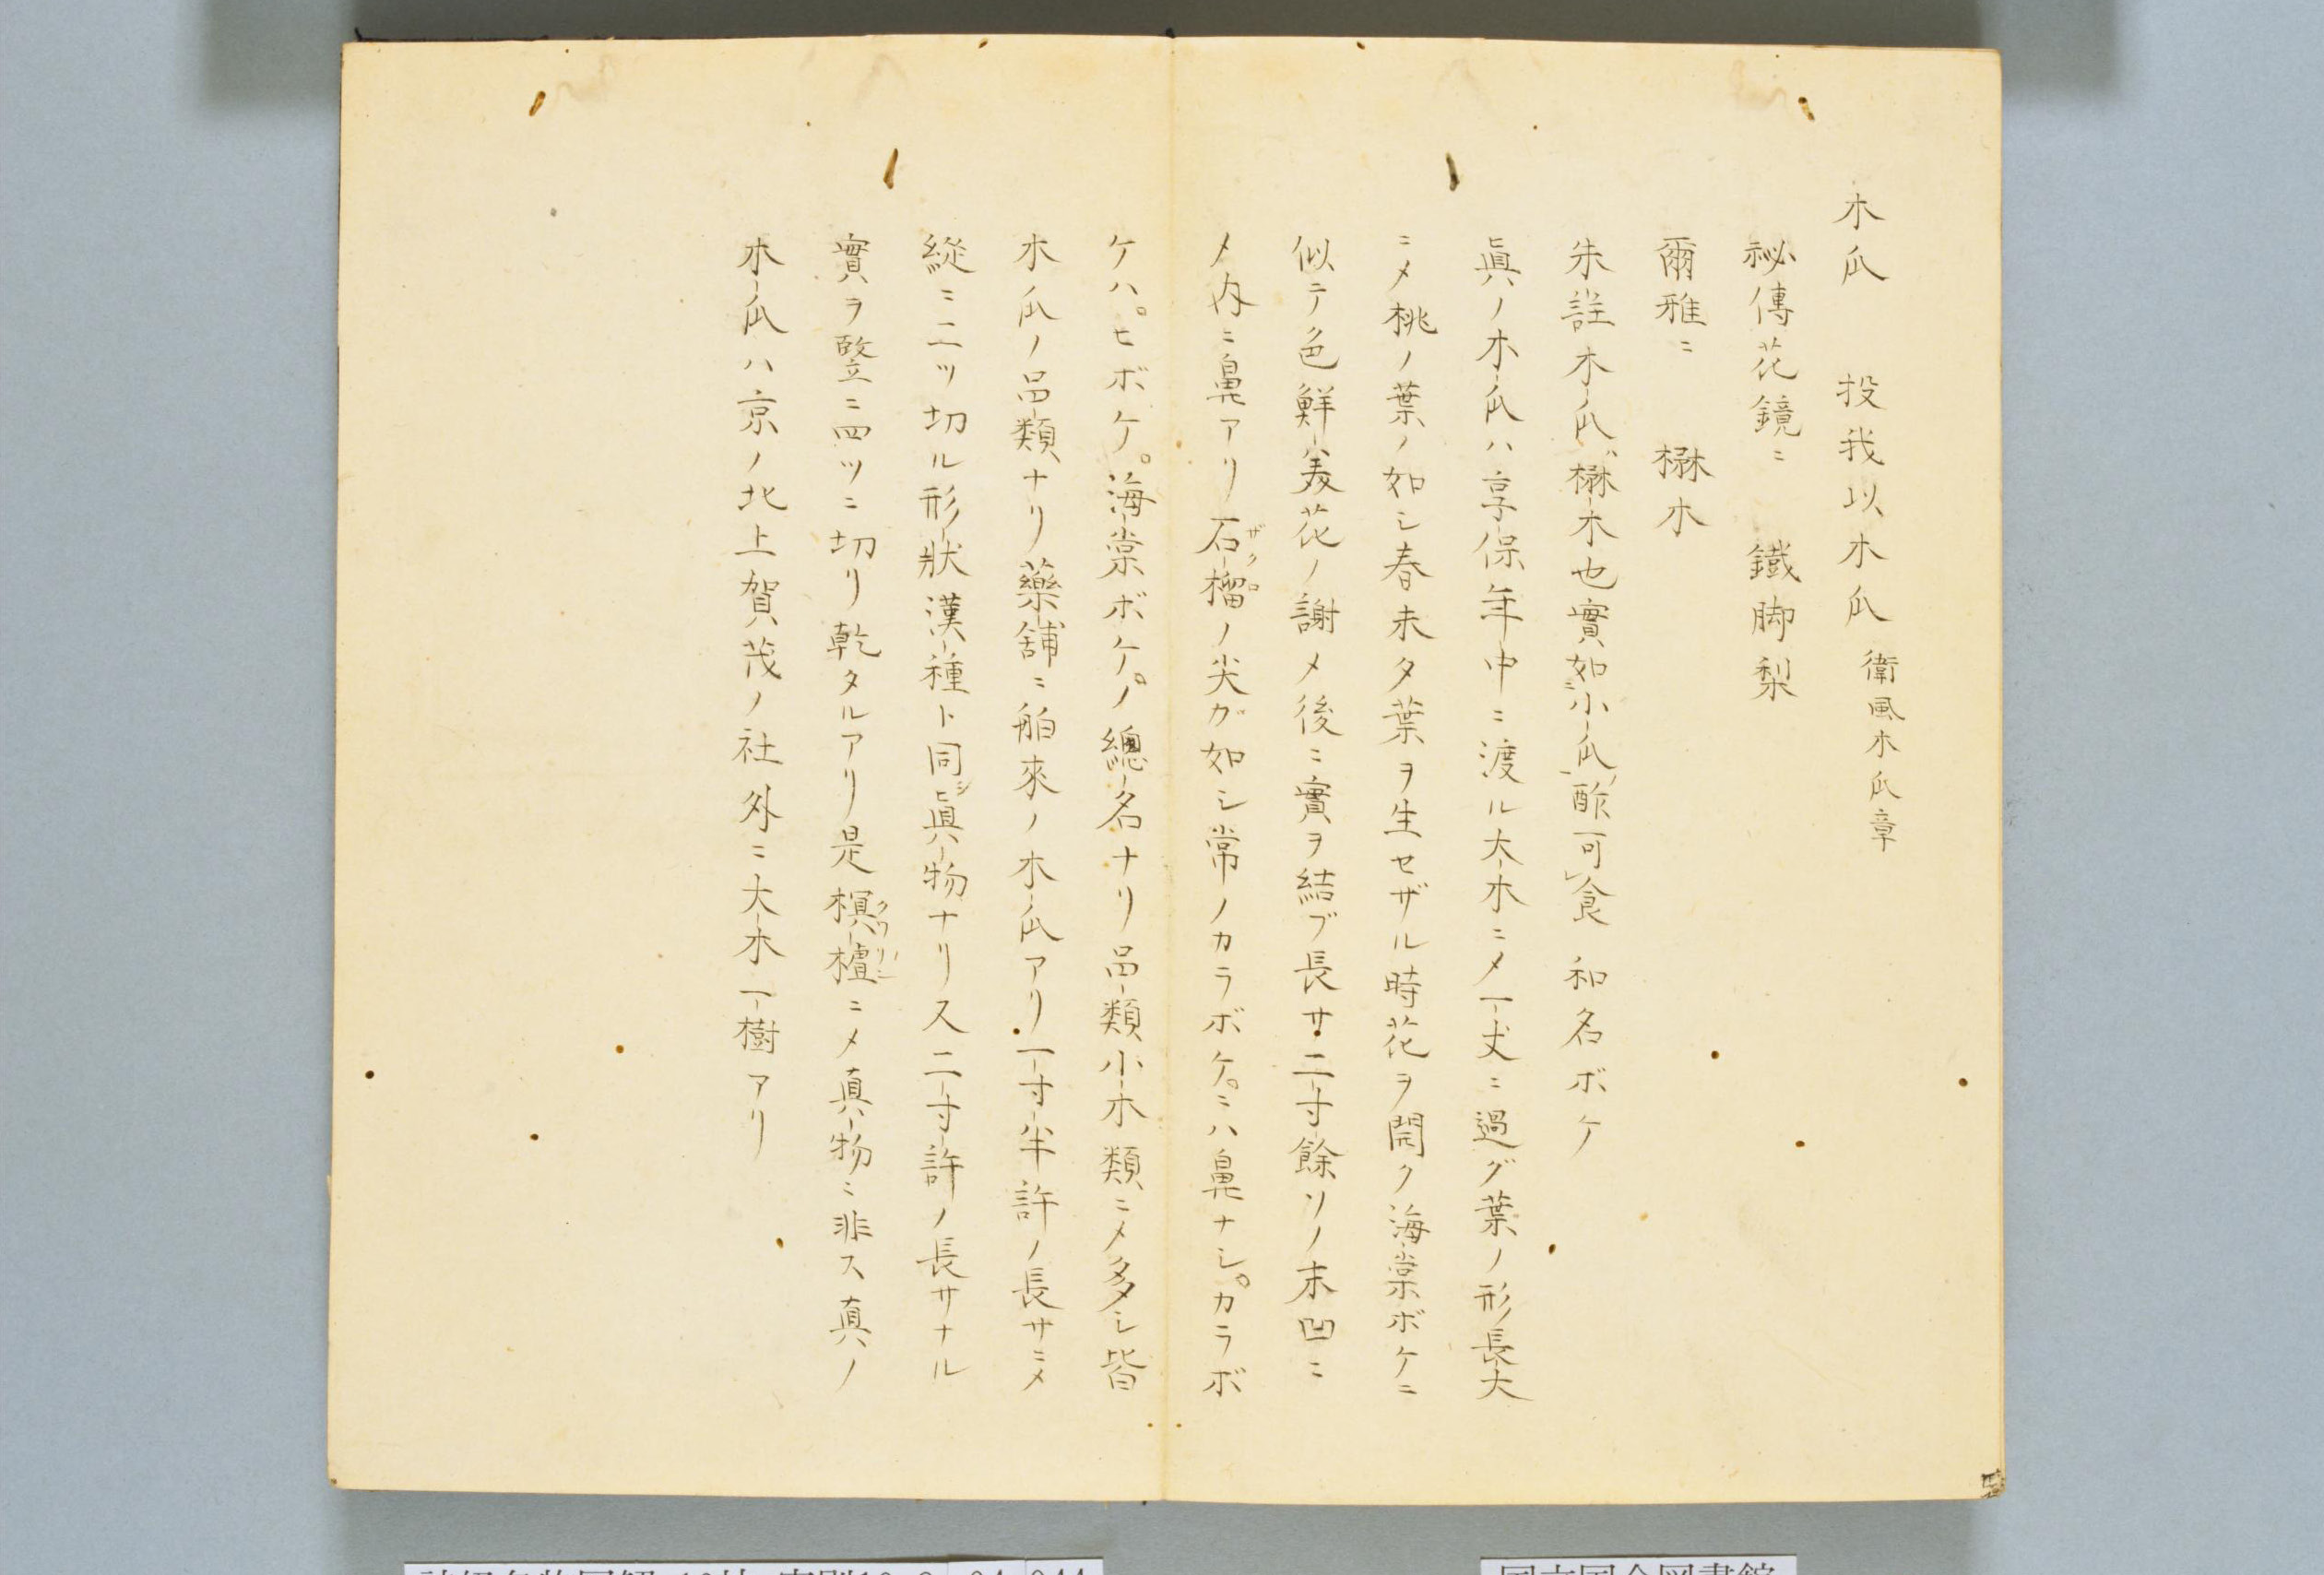 木瓜　投我以木瓜 衛風木瓜章
祕傳花鏡ニ　鐵脚梨
爾雅ニ　楙木
朱註木瓜ハ楙木也實如小瓜酢可食　和名ボケ
眞ノ木瓜ハ享保年中ニ渡ル大木ニメ一丈ニ過グ葉ノ形長大
ニメ桃ノ葉ノ如シ春未タ葉ヲ生セザル時花ヲ開ク海棠ボケニ
似テ色鮮美花ノ謝メ後ニ實ヲ結ブ長サ二寸餘リノ末凹ニ
メ内ニ鼻アリ石榴ノ尖ガ如シ常ノカラボケニハ鼻ナシカラボ
ザクロ
ケハ。ヒボケ。海棠ボケ。ノ總名ナリ品類小木類ニメ多シ皆
木瓜ノ品類ナリ藥舗ニ舶來ノ木瓜アリ一寸半許ノ長サニメ
縱ニ二ツ切ル形狀漢種ト同シ眞物ナリ又二寸許ノ長サナル
實ヲ竪ニ四ツニ切リ乾タルアリ是榠樝ニメ真物ニ非ス真ノ
クワリン
木瓜ハ京ノ北上賀茂ノ社外ニ大木一樹アリ